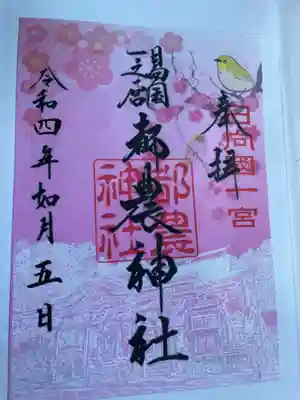 奉拝
日向國一宮
日向国
一之宮
都農神社
都農
神社
令和四年如月五日